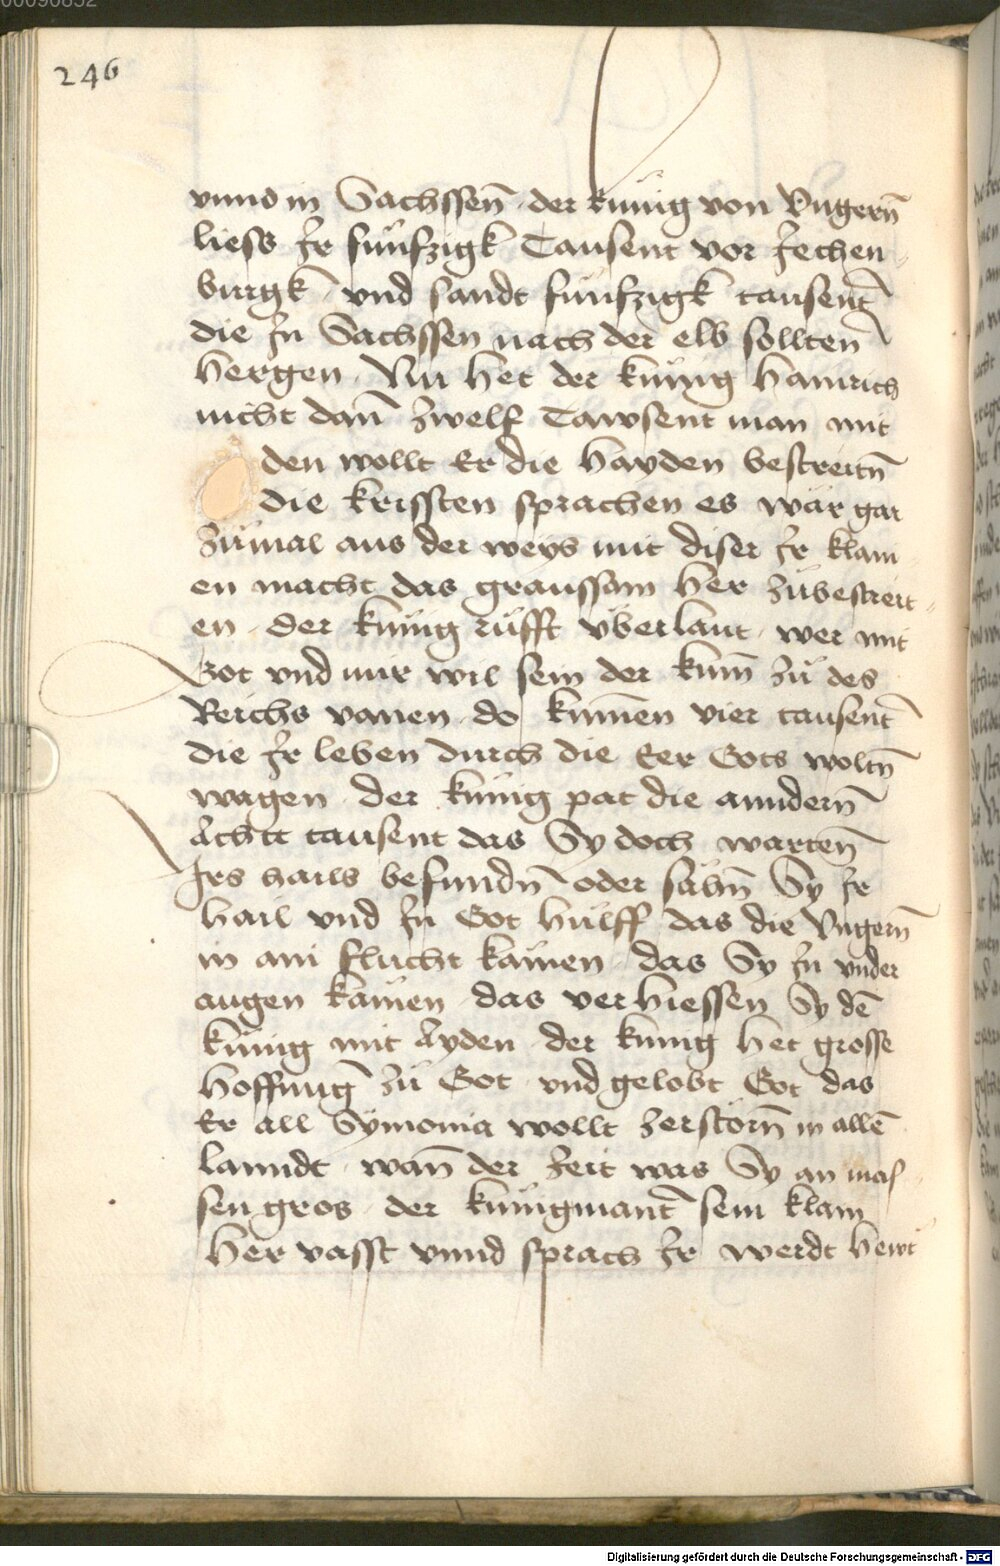 00090852
246
vnnd in Sachssen̄ · der künig von Vngern̄
liess Jr fünfzigk Tausent vor Jechen-
burgk · vnd sandt fünfzigk tausent
die Jn Sachssen nach der elb sollten
hergen · Nu het der künig Hainrich
nicht dan̄ zwelf Tawsent man mit
den wollt Er die Hayden bestreitn̄
die kristen sprachen es wär gar
zümal aus der weys mit diser Jr klain
en macht das graussam her zübestreit-
en · der künig rüfft vberlaut · wer mit
Got vnd mir wil sein der kum̄ zü des
Reichs vanen · do kumen vier tausent
die Jr leben durch die Eer Gots woltn̄
wagen · der künig pat die anndern̄
Achtt tausent das Sy doch warten̄
Irs hails befundn̄ oder sähn̄ Sy Jr
hail vnd Jn Got hülff das die Vngern̄
in ain flucht kämen · das Sy Jn vnder
augen kämen · das verhiessen Sy dē
künig mit Ayden · der künig het grosse
hoffnung zü Got · vnd gelobt Got das
Er all Symonia wollt zerstörn̄ in allē
lanndt · wan̄ der zeit was Sy an mas-
sen gros · der künig mant sein klain
her vasst vnnd sprach Jr werdt hewt
Digitalisierung gefördert durch die Deutsche Forschungsgemeinschaft - DFG